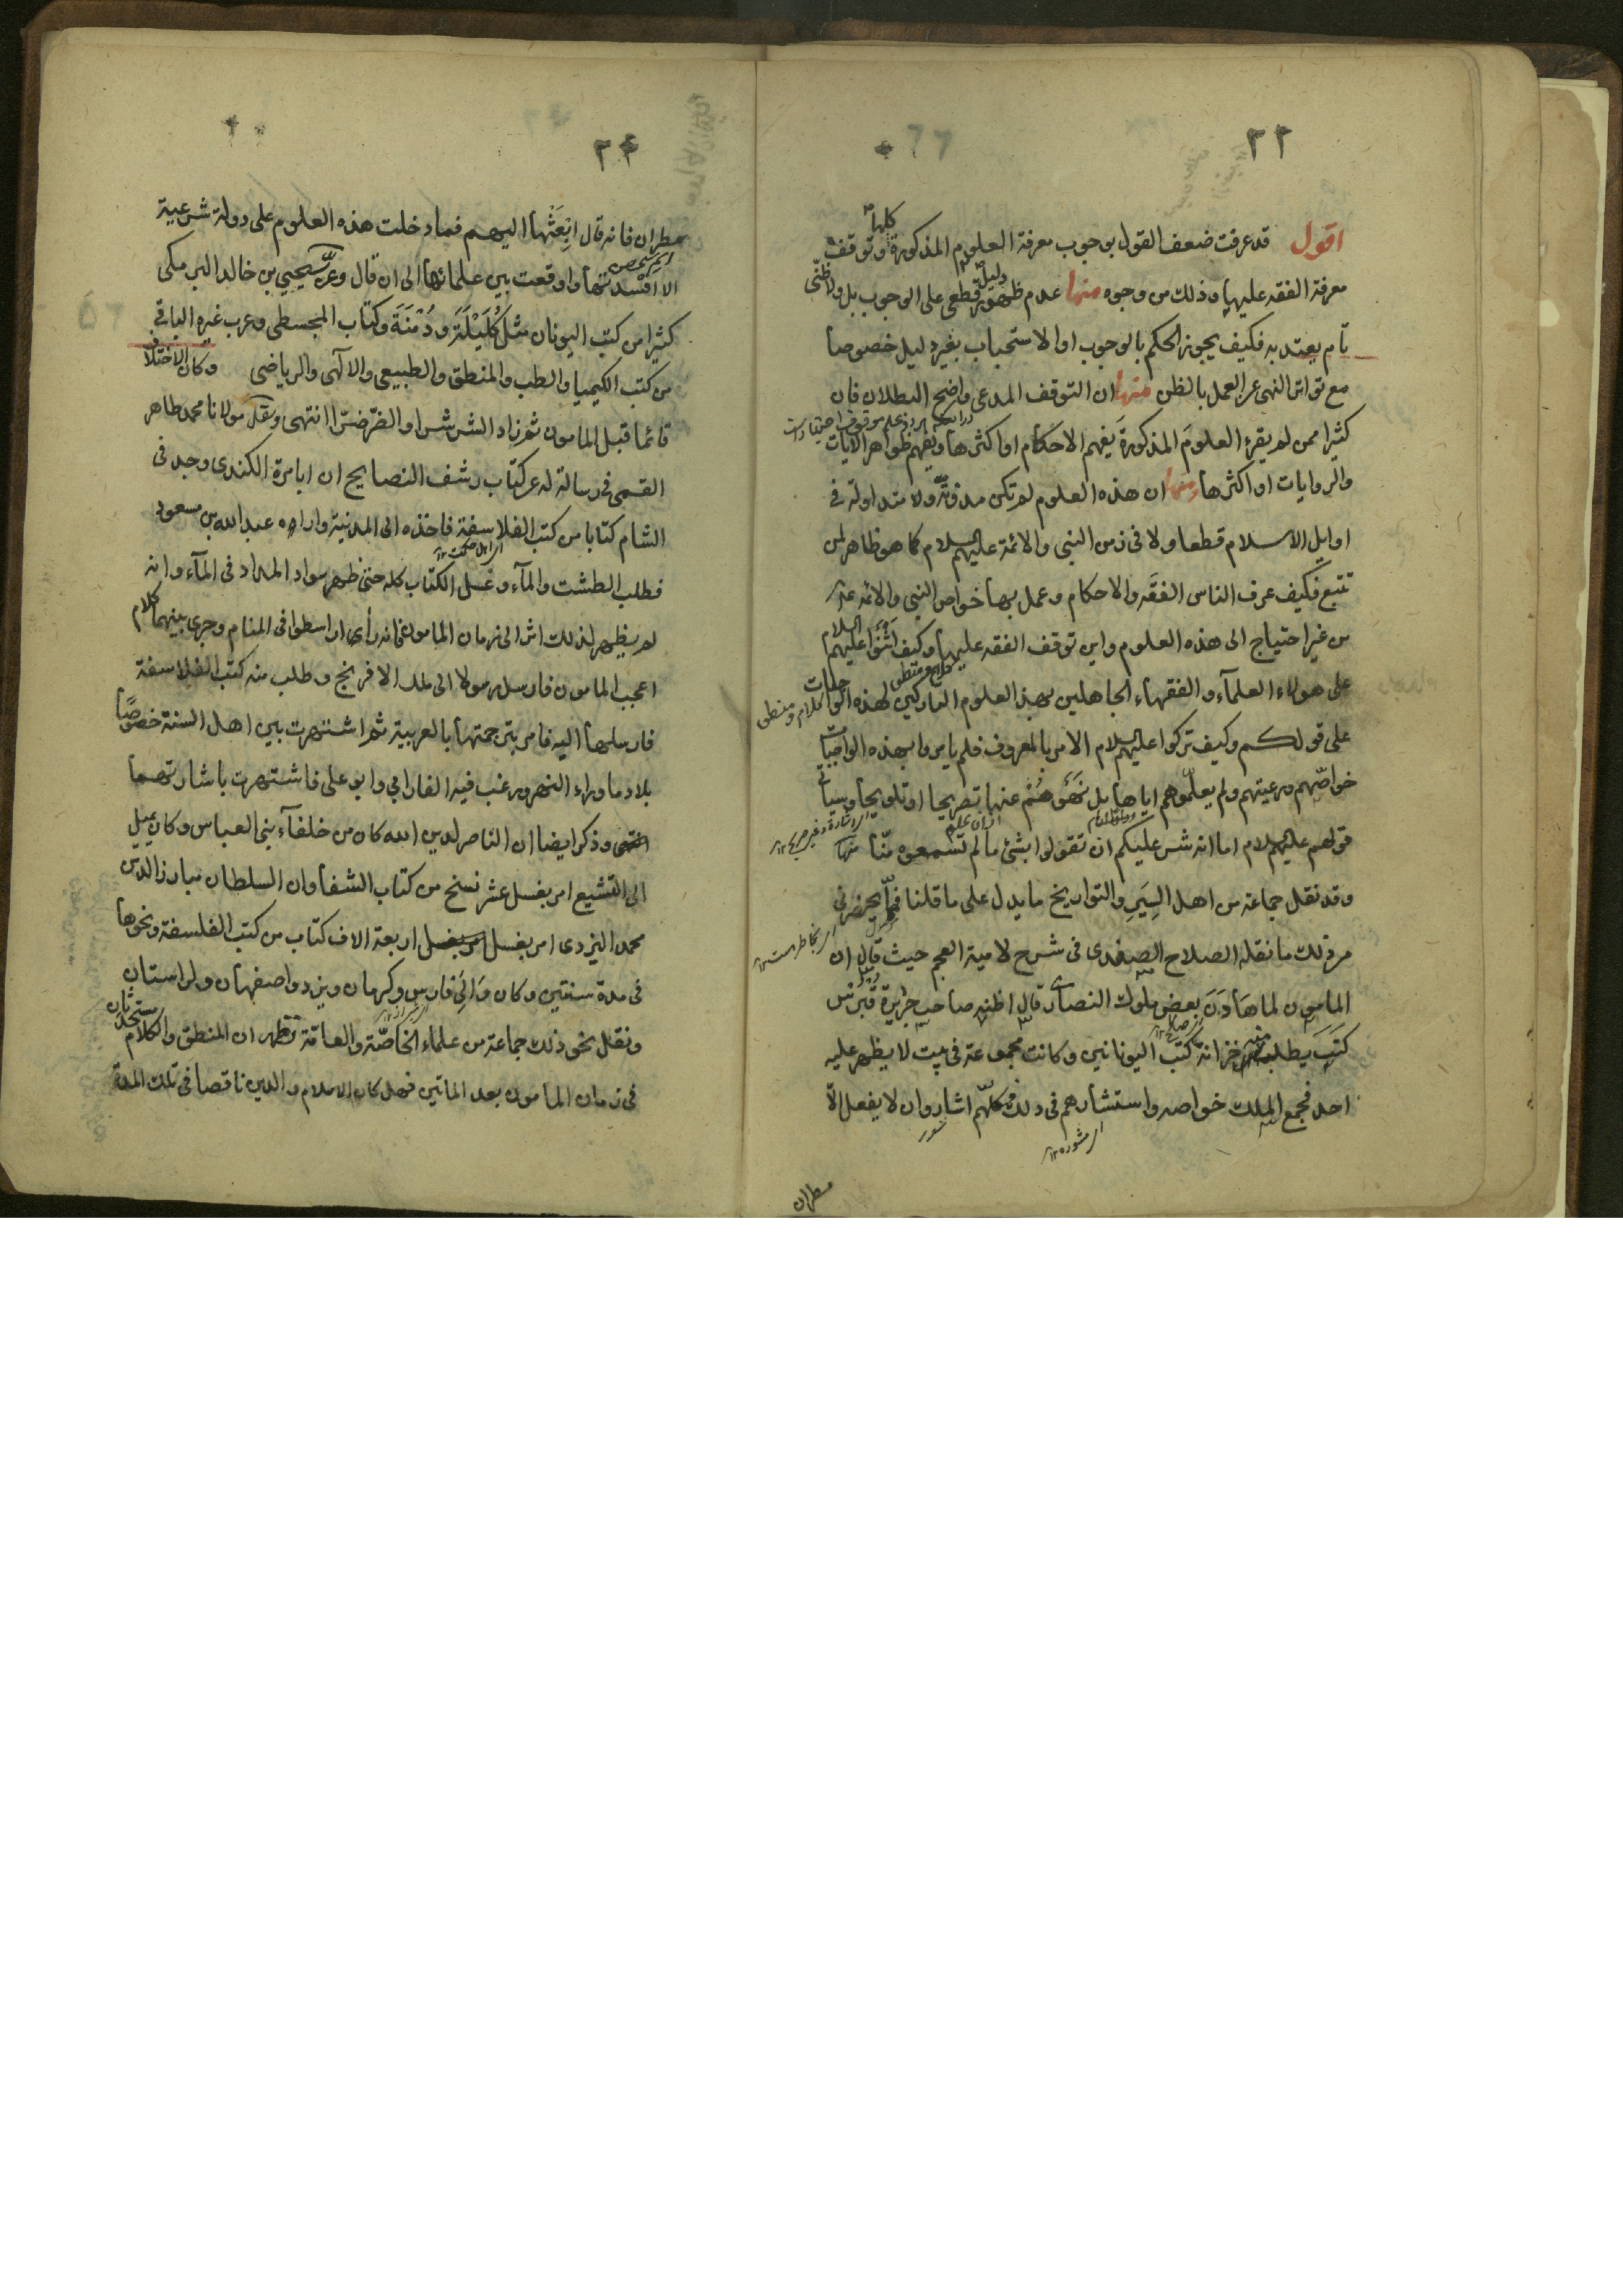 ٢٣
اقول قد عرفت ضعف القول بوجوب معرفة العلوم المذكورة كلها وتوقف
معرفة الفقه عليها وذلك من وجوه منها عدم ظهور دليل قطعى على الوجوب بل ولا ظنّى
تام يعتد به فكيف يجوز الحكم بالوجوب او الاستحباب بغير دليل خصوصا
مع تواتر النهى عن العمل بالظن منها ان التوقف المدعى واضح البطلان فان
كثيرا ممن لم يقرء العلوم المذكورة يفهم الاحكام او اكثرها ويفهم ظواهر الايات
والروايات او اكثرها منها ان هذه العلوم لم تكن مدونة ولا متداولة فى
اوايل الاسلام قطعا ولا فى زمن النبى والائمة عليهم السلام كما هو ظاهر لمن
تتبع فكيف عرف الناس الفقه والاحكام وعمل بها خواص النبى والائمه
من غير احتياج الى هذه العلوم واين توقف الفقه عليها وكيف اثنوا عليهم السلام
على هولاء العلمآء والفقهاء الجاهلين بهذ العلوم التاركين لهذه الواجبات
على قولكم وكيف تركوا عليهم السلام الامر بالمعروف فلم يامروا بهذه الواجبات
خواصّهم ورعيتهم ولم يعلّموهم اياها بل نهوهم عنها تصريحا او تلويحا وسياتى
قولهم عليهم السلام اما انه شر عليكم ان تقولوا بشئ ما لم تسمعوه منّا منها
وقد نقل جماعة من اهل السير والتواريخ ما يدل على ما قلنا فمما يحضرنى
من ذلك ما نقله الصلاح الصفدى فى شرح لامية العجم حيث قال ان
المامون لما هادن بعض ملوك النصارى قال اظنه صاحب جزيرة قبرس
كتب يطلب منه خزانة كتب اليونانيين وكانت مجموعة فى بيت لا يظهر عليه
احد فجمع الملك خواصه واستشارهم فى ذلك فكلّهم اشاروا ان لا يفعل الّا
مطران
٢٤
مطران فانه قال ابعثها اليهم فما دخلت هذه العلوم على دولة شرعية
الا افسدتها واوقعت بين علمائها الى ان قال وعرّب يحيى بن خالد البرمكى
كثيرا من كتب اليونان مثل كليلة ودمنة وكتاب المجسطى وعرب غيره الباقى
من كتب الكيميا والطب والمنطق والطبيعى والالهى والرياضى وكان الاختلاف
قائما قبل المامون ثم زاد الشر شرا والضرّ ضرّا انتهى ونقل مولانا محمد طاهر
القمى فى رسالة له عن كتاب رشف النصايح ان ابا مرة الكندى وجد فى
الشام كتابا من كتب الفلاسفة فاخذه الى المدينة واراه عبد الله بن مسعود
فطلب الطشت والمآء وغسل الكتاب كله حتى ظهر سواد المداد فى المآء وانه
لم يظهر لذلك اثر الى زمان المامون فانه رأى ارسطو فى المنام وجرى بينهما كلام
اعجب المامون فارسل رسولا الى بلاد الافرنج وطلب منه كتب الفلاسفة
فارسلها اليه فامر بترجمتها بالعربية ثم اشتهرت بين اهل السنة خصوصًا
بلاد ما وراء النهر ورغب فيه الفارابى وابو على فاشتهرت باشارتهما
انتهى وذكر ايضا ان الناصر لدين الله كان من خلفآء بنى العباس وكان يميل
الى التشيع امر بغسل عشر نسخ من كتاب الشفا وان السلطان مبارز الدين
محمد اليزدى امر بغسل اربعة الاف كتاب من كتب الفلسفة ونحوها
فى مدة سنتين وكان والى فارس وكرمان ويزد واصفهان ولرستان
ونقل نحو ذلك جماعة من علماء الخاصّة والعامّة فظهر ان المنطق والكلام مستحدثان
فى زمان المامون بعد المائتين فهل كان الاسلام والدين ناقصا فى تلك المدة